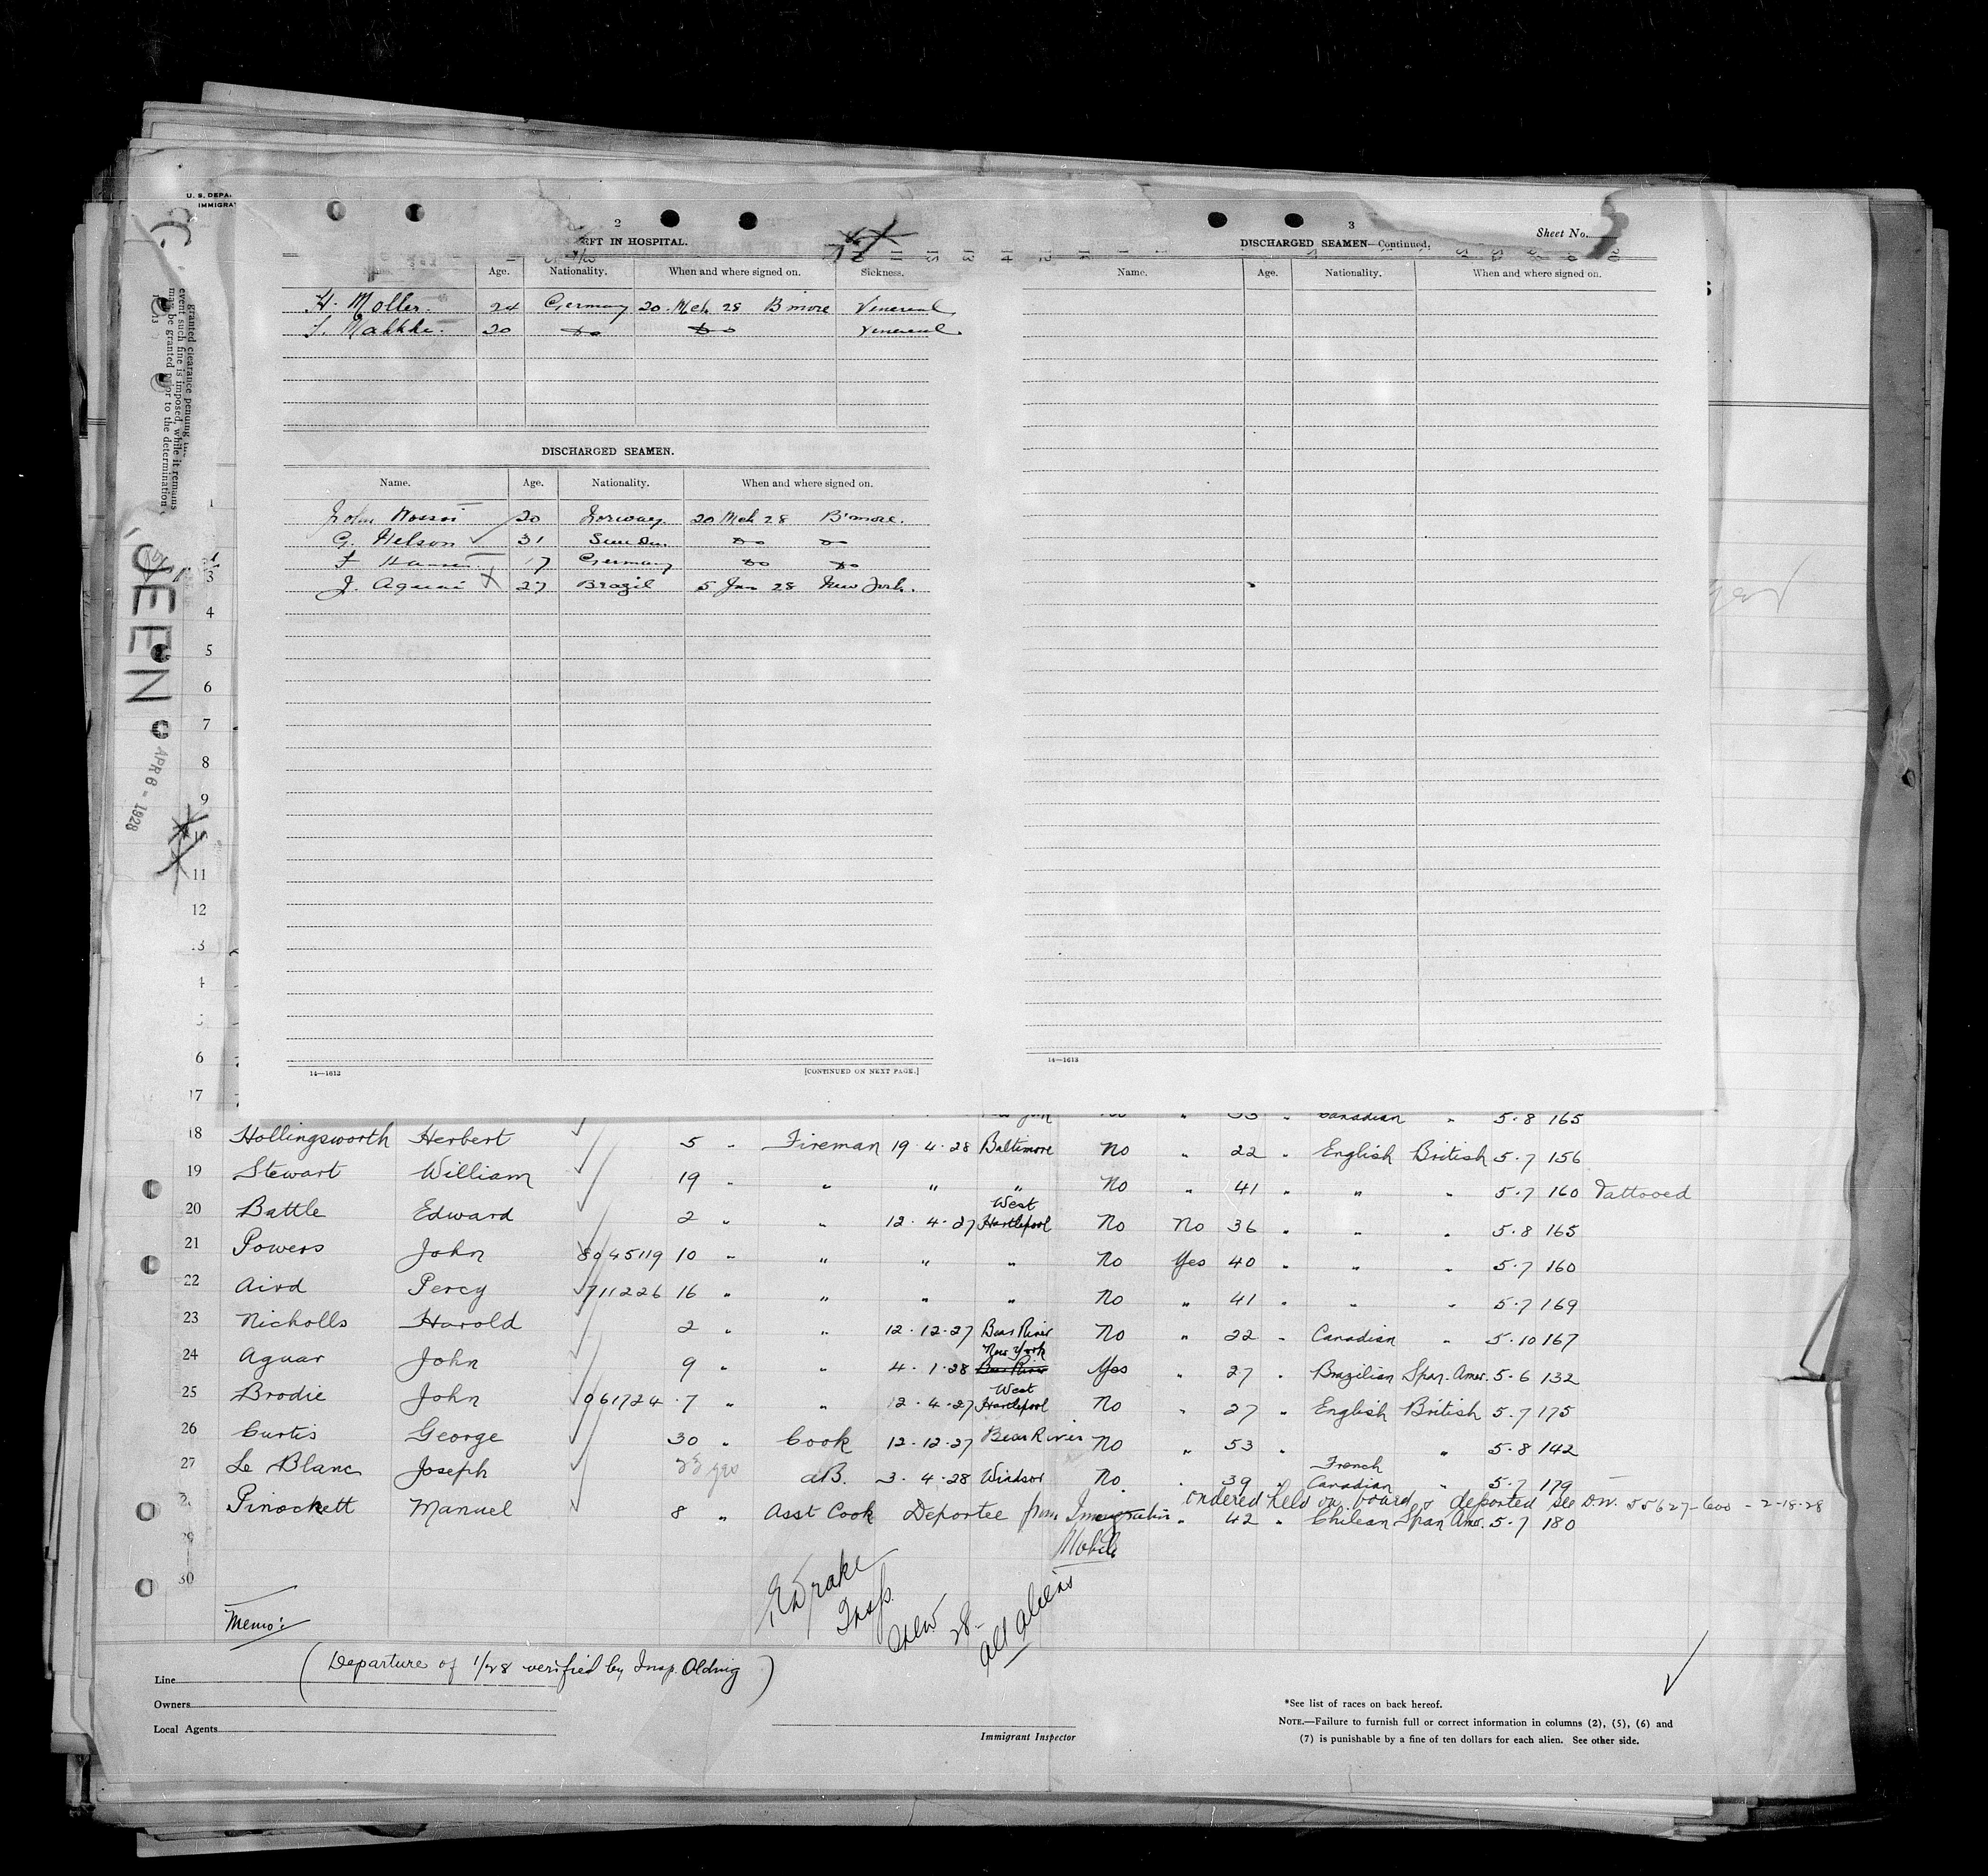 U. S. DEPA
IMMIGRA
2
EFT IN HOSPITAL.
Age. Nationality. When and where signed on. Sickness.
H. Moller. 24 Germany 20 Mch. 28 B'more Venereal
20 Do Do Venereal
DISCHARGED SEAMEN.
Name. Age. Nationality. When and where signed on.
John 20 Norway 20 Mch 28 B'more.
G. Nelson 31 Sweden Do Do
17 Germany Do Do
J. 27 Brazil 5 Jan 28 New York.
14—1613
[CONTINUED ON NEXT PAGE.]
3
Sheet No.
DISCHARGED SEAMEN—Continued.
Name. Age. Nationality. When and where signed on.
14—1613
granted clearance pending the
event such fine is imposed, while it remains
may be granted prior to the determination
SEEN
APR 6 - 1928
1
3
4
5
6
7
8
9
11
12
6
17 Canadian " 5.8 165
18 Hollingsworth Herbert 5 " Fireman 19.4.28 Baltimore No " 22 " English British 5.7 156
19 Stewart William 19 " " " " No " 41 " " " 5.7 160 Tattooed
20 Battle Edward 2 " " 12.4.27 West Hartlepool No No 36 " " " 5.8 165
21 Powers John 8945119 10 " " " " No Yes 40 " " " 5.7 160
22 Aird Percy 711226 16 " " " " No " 41 " " " 5.7 169
23 Nicholls Harold 2 " " 12.12.27 Bear River No " 22 " Canadian " 5.10 167
24 Aguar John 9 " " 4.1.28 New York Bear River Yes " 27 " Brazilian Span. Amer. 5.6 132
25 Brodie John 961724 7 " " 12.4.27 West Hartlepool No " 27 " English British 5.7 175
26 Curtis George 30 " Cook 12.12.27 Bear River No " 53 " " 5.8 142
27 Le Blanc Joseph aB. 3.4.28 Windsor No. " 39 " French Canadian " 5.7 179
ordered held on board & deported see DW. 55627-600 - 2-18-28
Pinochett Manuel 8 " Asst Cook Deportee from Immigration " 42 " Chilean Span Amer. 5.7 180
Mobile
29
30
Memo:
Drake
Insp.
Crew 28-
all aliens
(Departure of 1/28 verified by Insp. Oldrig)
Line
Owners
Local Agents
Immigrant Inspector
*See list of races on back hereof.
NOTE.—Failure to furnish full or correct information in columns (2), (5), (6) and
(7) is punishable by a fine of ten dollars for each alien. See other side.